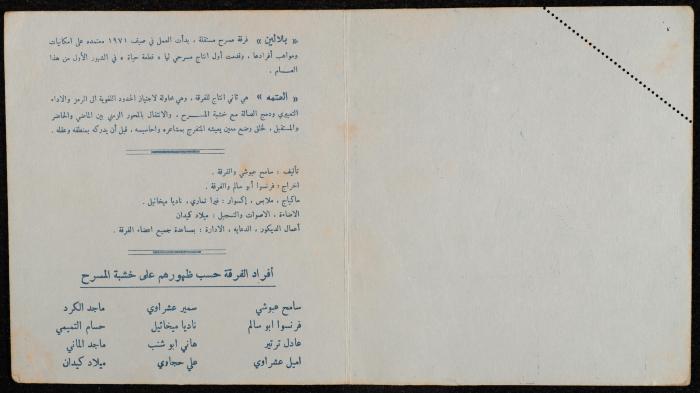 « بلالين » فرقة مسرح مستقلة ، بدأت العمل في صيف ١٩٧١ معتمده على امكانيات
ومواهب أفرادها ، وقدمت أول انتاج مسرحي لها « قطعة حياة » في الشهور الأول من هذا
العـــام .
« العتمه » هي ثاني انتاج للفرقة ، وهي محاولة لاجتياز الحدود اللغوية الى الرمز والاداء
التعبيري ودمج الصالة مع خشبة المســـرح ، والانتقال بالمحور الزمني بين الماضي والحاضر
والمستقبل ، لخلق وضع معين يعيشه المتفرج بمشاعره واحاسيسه ، قبل أن يدركه بمنطقه وعقله .
تأليف : سامح عبوشي والفرقة .
اخراج : فرنسوا أبو سالم والفرقة .
ماكياج ، ملابس ، إكسوار : فيرا تماري ، ناديا ميخائيل .
الاضاءة ، الاصوات والتسجيل : ميلاد كيدان
أعمال الديكور ، الدعايه ، الادارة : بمساعدة جميع اعضاء الفرقة .
أفراد الفرقة حسب ظهورهم على خشبة المسرح
سامح عبوشي سمير عشراوي ماجد الكرد
فرنسوا ابو سالم ناديا ميخائيل حسام التميمي
عادل ترتير هاني ابو شنب ماجد الماني
اميل عشراوي علي حجاوي ميلاد كيدان